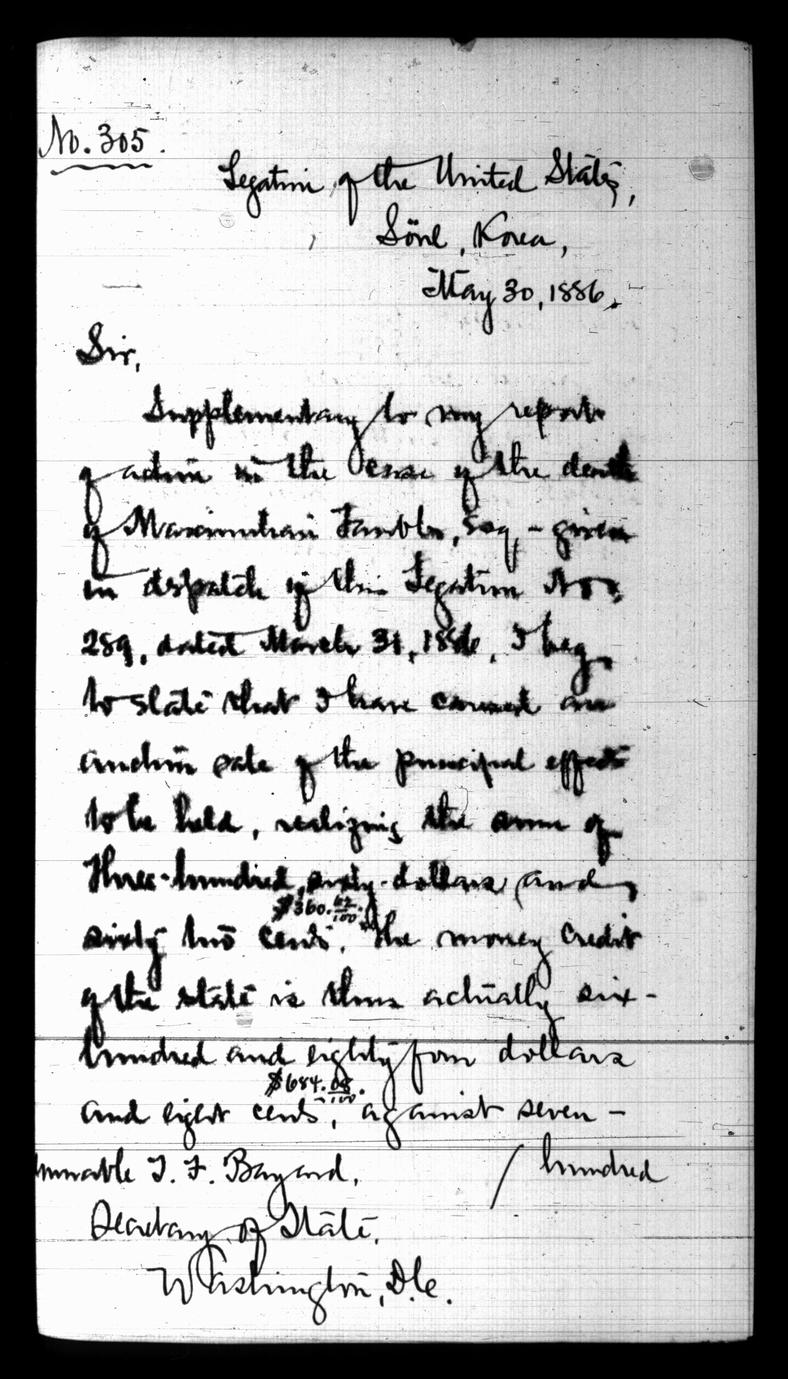 No. 305.
Legation of the United States,
Söul, Korea,
May 30, 1886.
Sir,
Supplementary to my report
of action in the case of the death
of Maximilian Taubles, Esq, - given
in dispatch of this Legation No.
289, dated March 31, 1886, I beg
to state that I have caused an
auction sale of the principal effects
to be held, realizing the sum of
three-hundred, sixty-dollars and
$360.62/100
sixty two cents. The money credit
of the state is thus actually six-
hundred and eighty four dollars
$684.08/100.
and eight cents, against seven -
/ hundred
Honorable T. F. Bayard,
Secretary of State,
Washington, D.C.